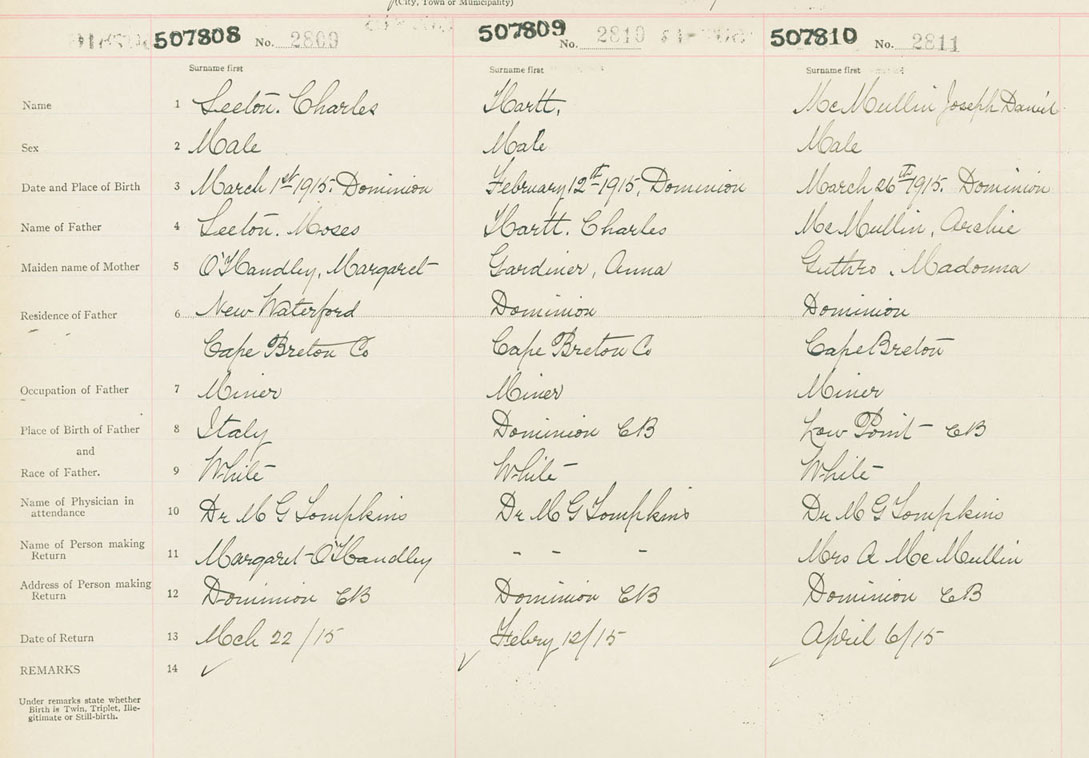 (City, Town or Municipality)
507808 No. 2809 507809 No. 2810 507810 No. 2811
Surname first Surname first Surname first
Name 1 Seeton. Charles Hartt, McMullin Joseph Daniel
Sex 2 Male Male Male
Date and Place of Birth 3 March 1st 1915. Dominion February 12th 1915, Dominion March 26th 1915. Dominion
Name of Father 4 Seeton. Moses Hartt. Charles McMullin, Archie
Maiden name of Mother 5 O'Handley, Margaret Gardiner, Anna Guthro, Madonna
Residence of Father 6 New Waterford Dominion Dominion
Cape Breton Co Cape Breton Co Cape Breton
Occupation of Father 7 Miner Miner Miner
Place of Birth of Father 8 Italy Dominion CB Low Point - CB
and
Race of Father. 9 White White White
Name of Physician in
attendance 10 Dr M G Tompkins Dr M G Tompkins Dr M G Tompkins
Name of Person making
Return 11 Margaret O'Handley - - - Mrs A McMullin
Address of Person making
Return 12 Dominion CB Dominion CB Dominion CB
Date of Return 13 Mch 22/15 Febry 12/15 April 6/15
REMARKS 14 ✓ ✓ ✓
Under remarks state whether
Birth is Twin, Triplet, Ille-
gitimate or Still-birth.